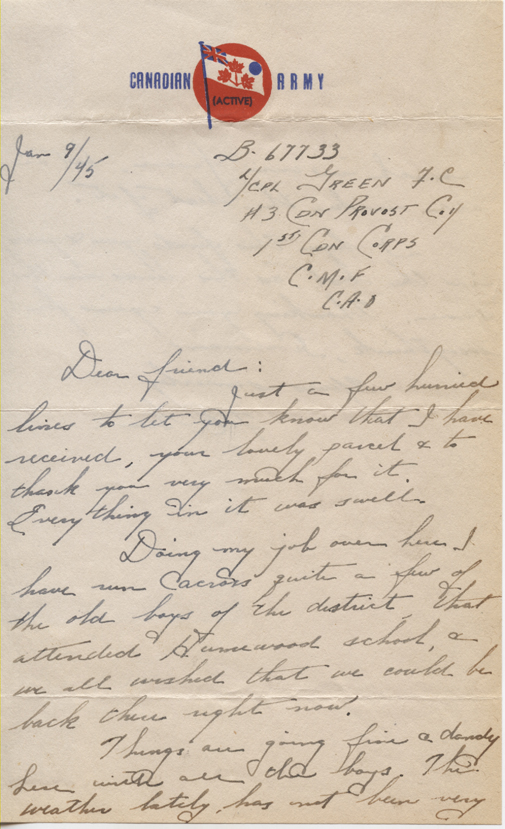 CANADIAN ARMY
(ACTIVE)
Jan 9/45
B-67733
L/CPL GREEN F.C
#3 CDN PROVOST COY
1ST CDN CORPS
C.M.F
C.A.O
Dear friend:
Just a few hurried
lines to let you know that I have
received, your lovely parcel & to
thank you very much for it.
Everything in it was swell.
Doing my job over here I
have run across quite a few of
the old boys of the district, that
attended Humewood school, &
we all wished that we could be
back there right now.
Things are going fine & dandy
here with all the boys. The
weather lately, has not been very